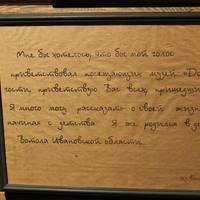 Мне бы хотелось, что бы мой голос
приветствовал посещающих музей "До
гости, приветствую Вас всех, пришедши
Я много могу рассказать о своей жизн
начиная с детства. Я же родился в де
Вотола Ивановской области.